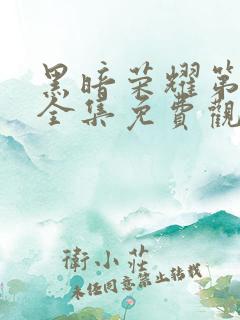 黑暗荣耀第
全集免費觀
衛小莊
未经同意禁止转载